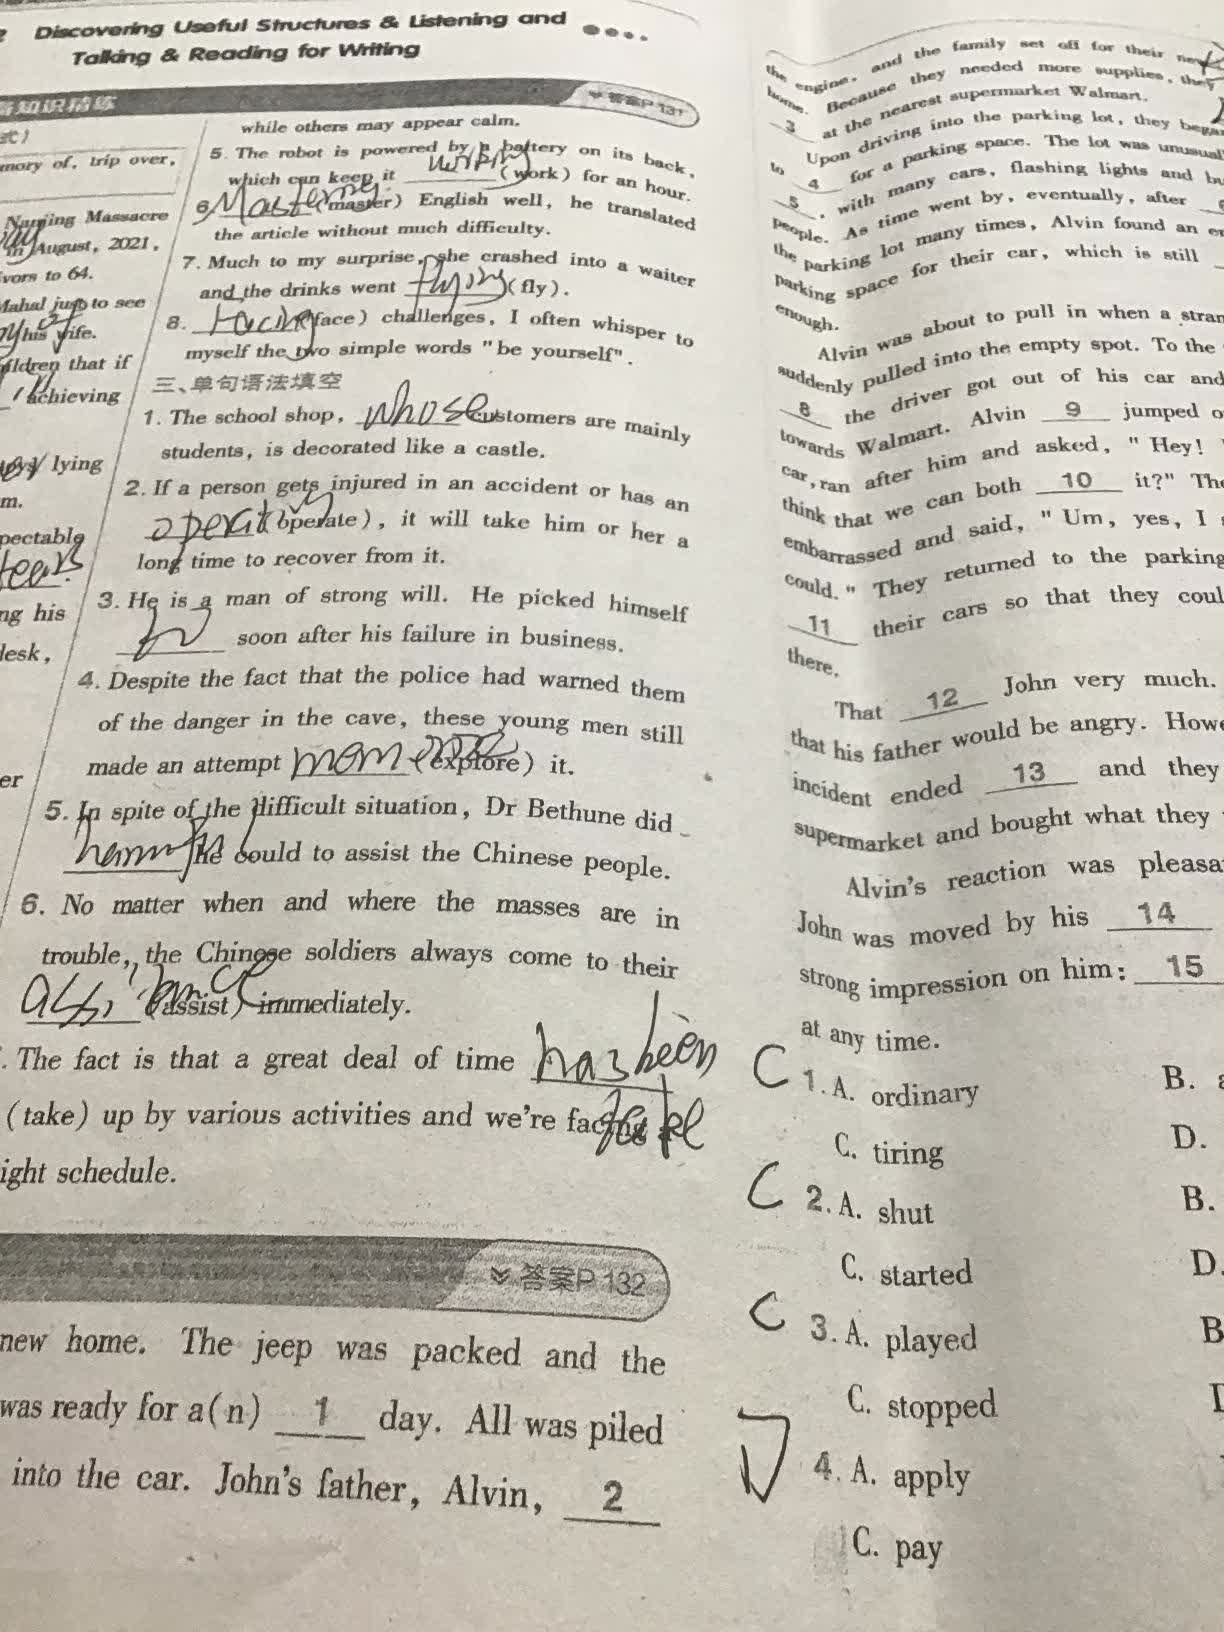 Discovering Useful Structures & Listening and
Talking & Reading for Writing
知识精练
答案P 131
式)
mory of, trip over,
Nanjing Massacre
in August, 2021,
vors to 64.
Mahal just to see
his wife.
ildren that if
achieving
lying
m.
pectable
tears.
ng his
desk,
er
while others may appear calm.
5. The robot is powered by a battery on its back,
which can keep it working (work) for an hour.
6. Mastering (master) English well, he translated
the article without much difficulty.
7. Much to my surprise, she crashed into a waiter
and the drinks went flying (fly).
8. Facing (face) challenges, I often whisper to
myself the two simple words "be yourself".
三、单句语法填空
1. The school shop, whose customers are mainly
students, is decorated like a castle.
2. If a person gets injured in an accident or has an
(operate), it will take him or her a
long time to recover from it.
3. He is a man of strong will. He picked himself
soon after his failure in business.
4. Despite the fact that the police had warned them
of the danger in the cave, these young men still
made an attempt (explore) it.
5. In spite of the difficult situation, Dr Bethune did
he could to assist the Chinese people.
6. No matter when and where the masses are in
trouble, the Chinese soldiers always come to their
(assist) immediately.
. The fact is that a great deal of time has been
(take) up by various activities and we're facing a
ight schedule.
答案P 132
new home. The jeep was packed and the
was ready for a(n) 1 day. All was piled
into the car. John's father, Alvin, 2
the engine, and the family set off for their new
home. Because they needed more supplies, they
3 at the nearest supermarket Walmart.
Upon driving into the parking lot, they began
to 4 for a parking space. The lot was unusual
5, with many cars, flashing lights and bu
people. As time went by, eventually, after 6
the parking lot many times, Alvin found an e
parking space for their car, which is still
enough.
Alvin was about to pull in when a stran
suddenly pulled into the empty spot. To the
8 the driver got out of his car and
towards Walmart. Alvin 9 jumped o
car, ran after him and asked, "Hey!
think that we can both 10 it?" The
embarrassed and said, "Um, yes, I
could." They returned to the parking
11 their cars so that they coul
there.
That 12 John very much.
that his father would be angry. Howe
incident ended 13 and they
supermarket and bought what they
Alvin's reaction was pleasa
John was moved by his 14
strong impression on him: 15
at any time.
C 1. A. ordinary B. a
C. tiring D.
C 2. A. shut B.
C. started D.
C 3. A. played B
C. stopped D
D 4. A. apply
C. pay